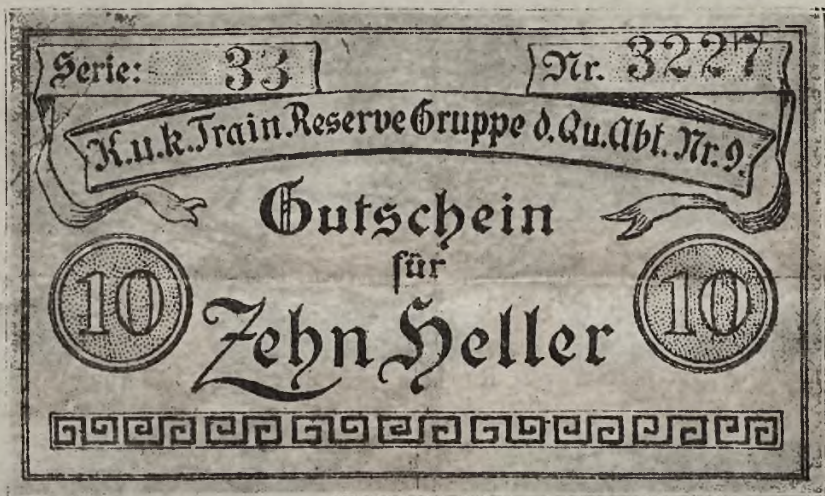 Serie: 33 Nr. 3227
K.u.k. Train Reserve Gruppe d. Qu. Abt. Nr. 9.
Gutschein
für
10 Zehn Heller 10